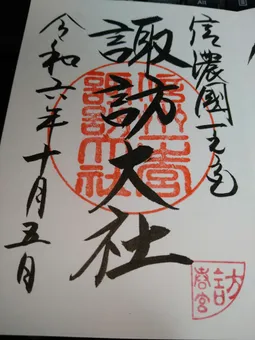 信濃國一之宮
諏訪大社
令和六年十月五日
諏訪大社
春宮